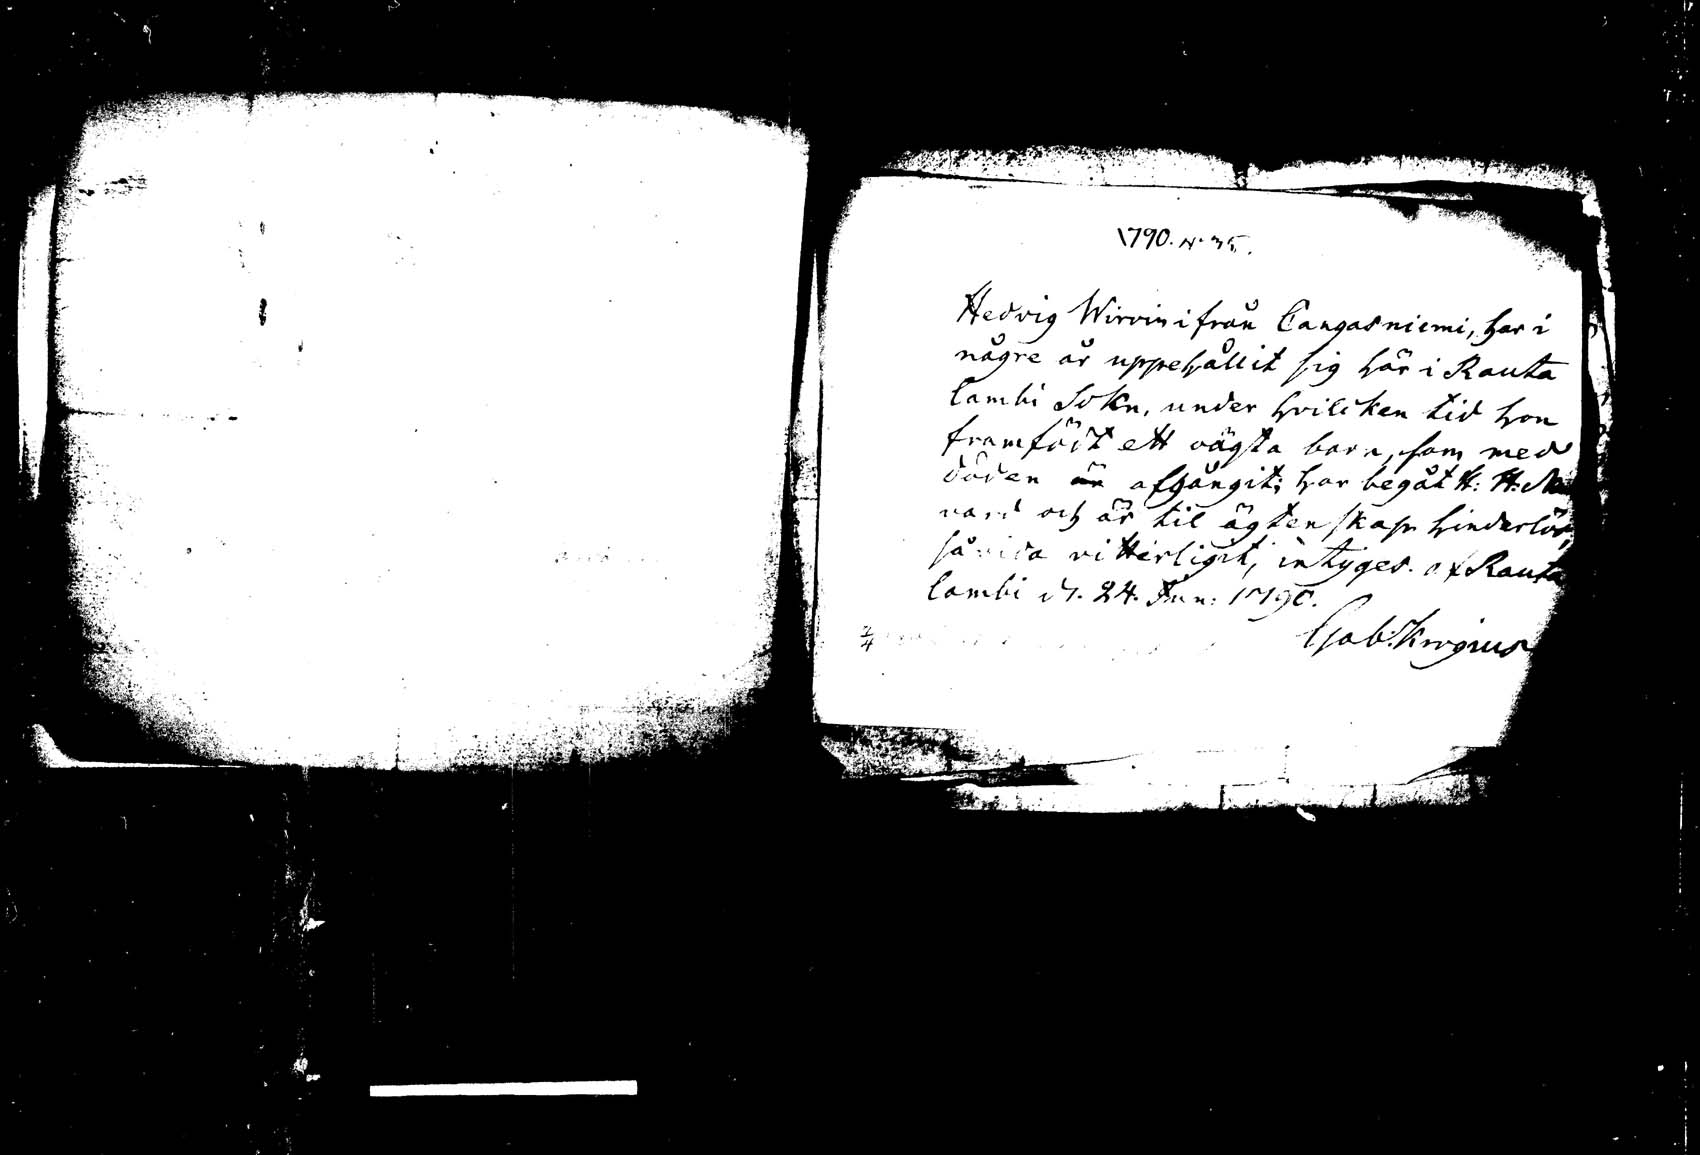 1790. N. 35.
Hedvig Wirvin ifrån Cangasniemi, har i
någre år uppehållit sig här i Rauta
lambi Sokn, under hvilcken tid hon
framfödt ett oägta barn, som med
döden är afgångit; har begåt H: H: Na
vard och är til ägtenskap hinderlös,
så vida vitterligit, intyges. af Rauta
lambi d. 24. Jun: 1790.
Gab: Krogius